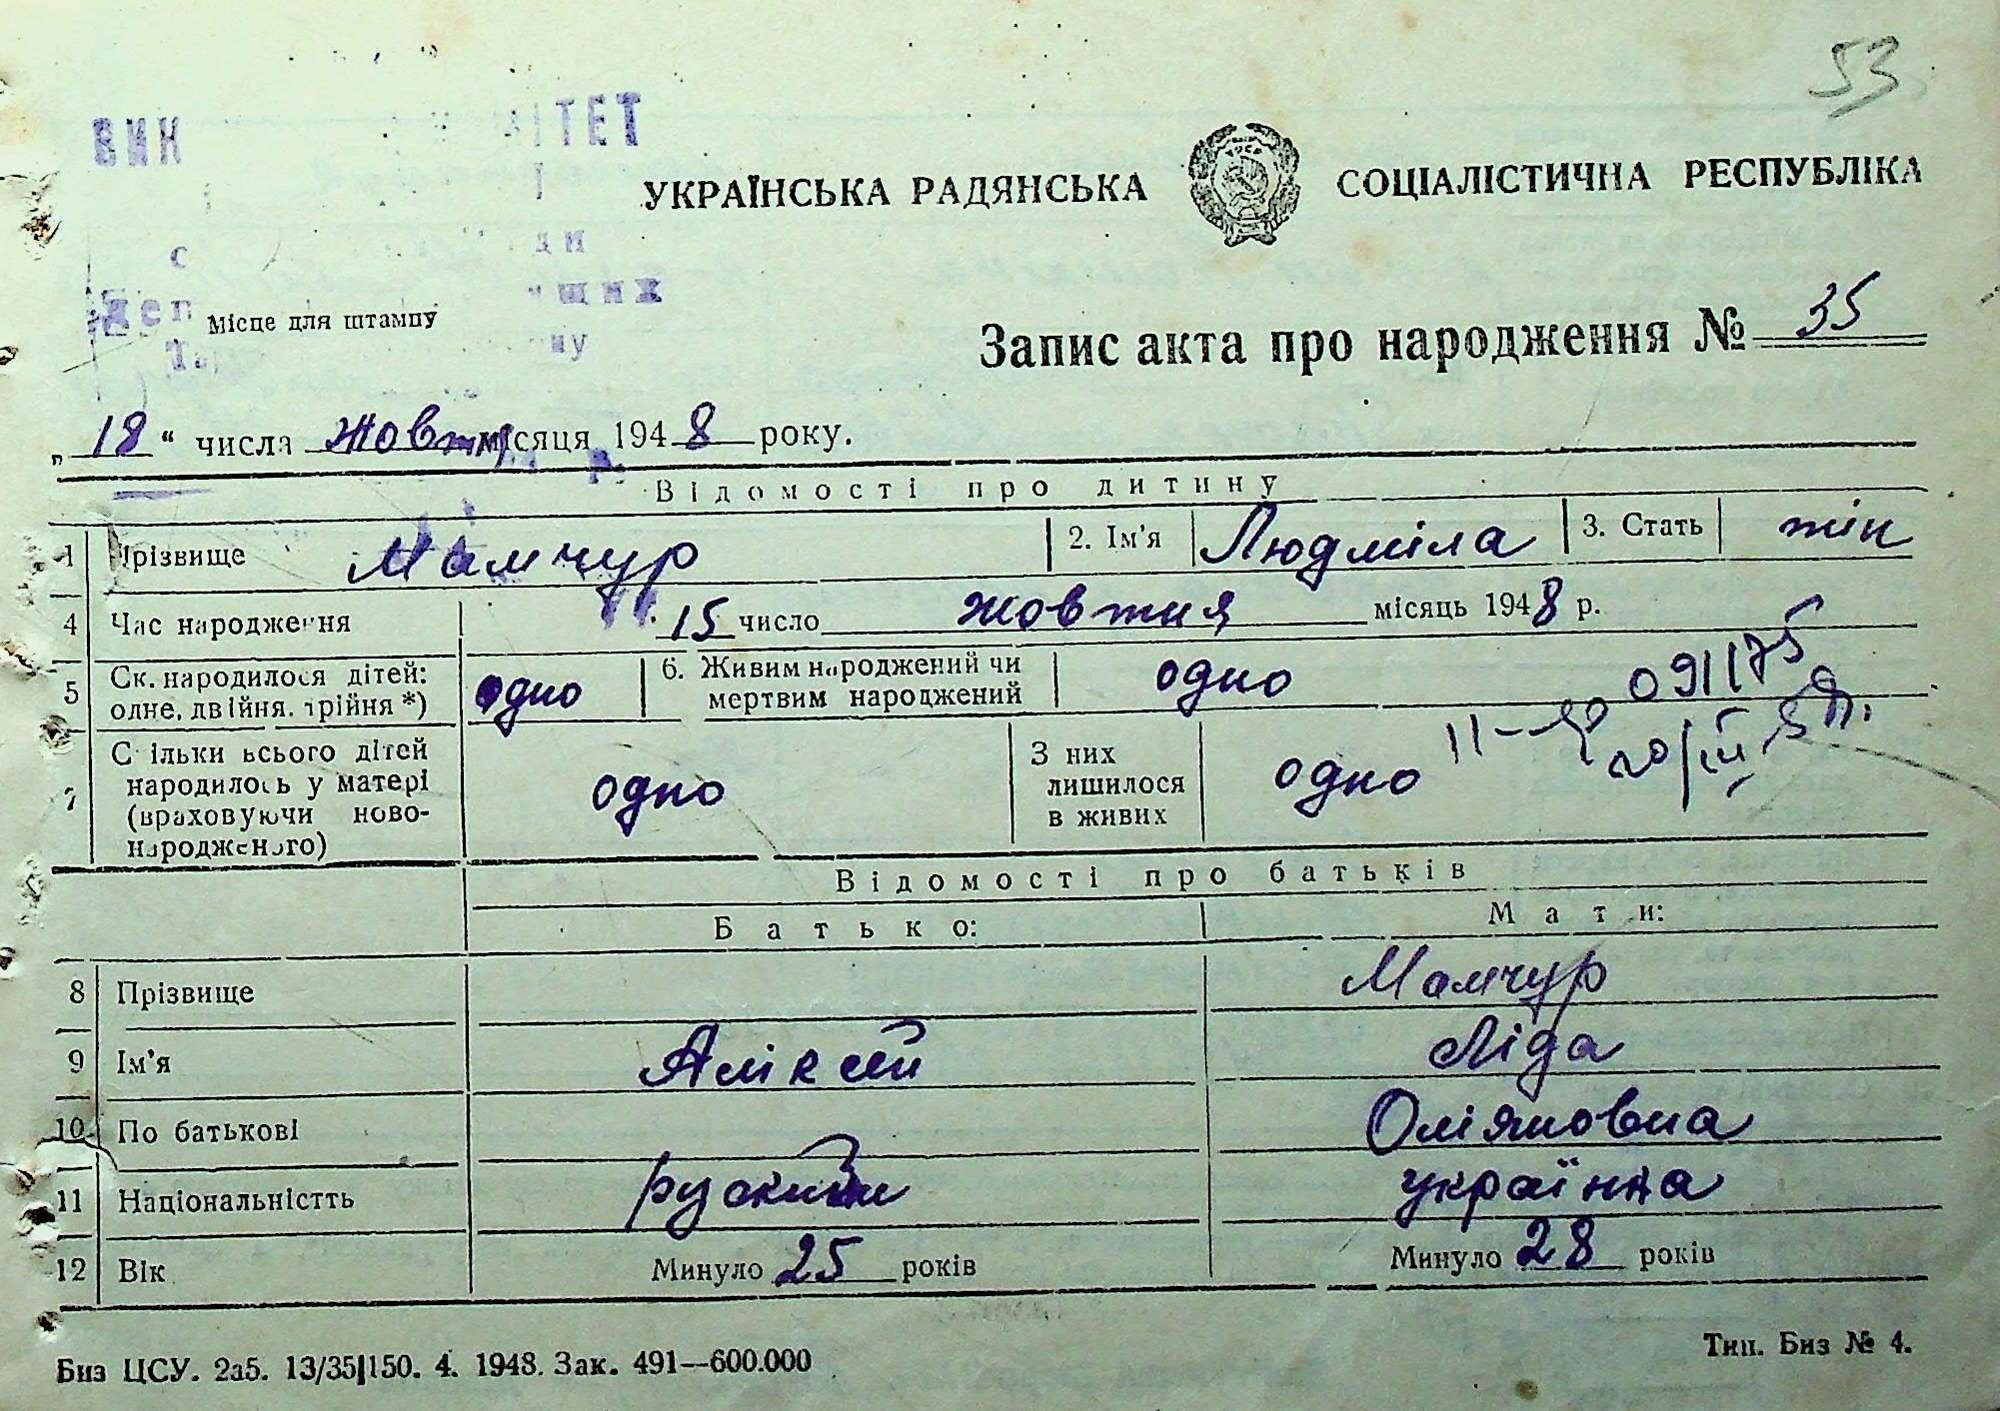 53
ВИК ІТЕТ
УКРАЇНСЬКА РАДЯНСЬКА СОЦІАЛІСТИЧНА РЕСПУБЛІКА
Місце для штампу
Запис акта про народження № 35
„18“ числа жовтн місяця 1948 року.
Відомості про дитину
1 Прізвище Мамчур 2. Ім'я Людміла 3. Стать жін
4 Час народження 15 число жовтня місяць 1948 р.
5 Ск. народилося дітей: одне, двійня, трійня *) одно 6. Живим народжений чи мертвим народжений одно
091175
7 Скільки всього дітей народилось у матері (враховуючи ново-народженого) одно З них лишилося в живих одно
Відомості про батьків
Батько: Мати:
8 Прізвище Мамчур
9 Ім'я Аліксей Ліда
10 По батькові Оліяновна
11 Національністть руский українка
12 Вік Минуло 25 років Минуло 28 років
Биз ЦСУ. 2аб. 13/35|150. 4. 1948. Зак. 491—600.000
Тип. Биз № 4.